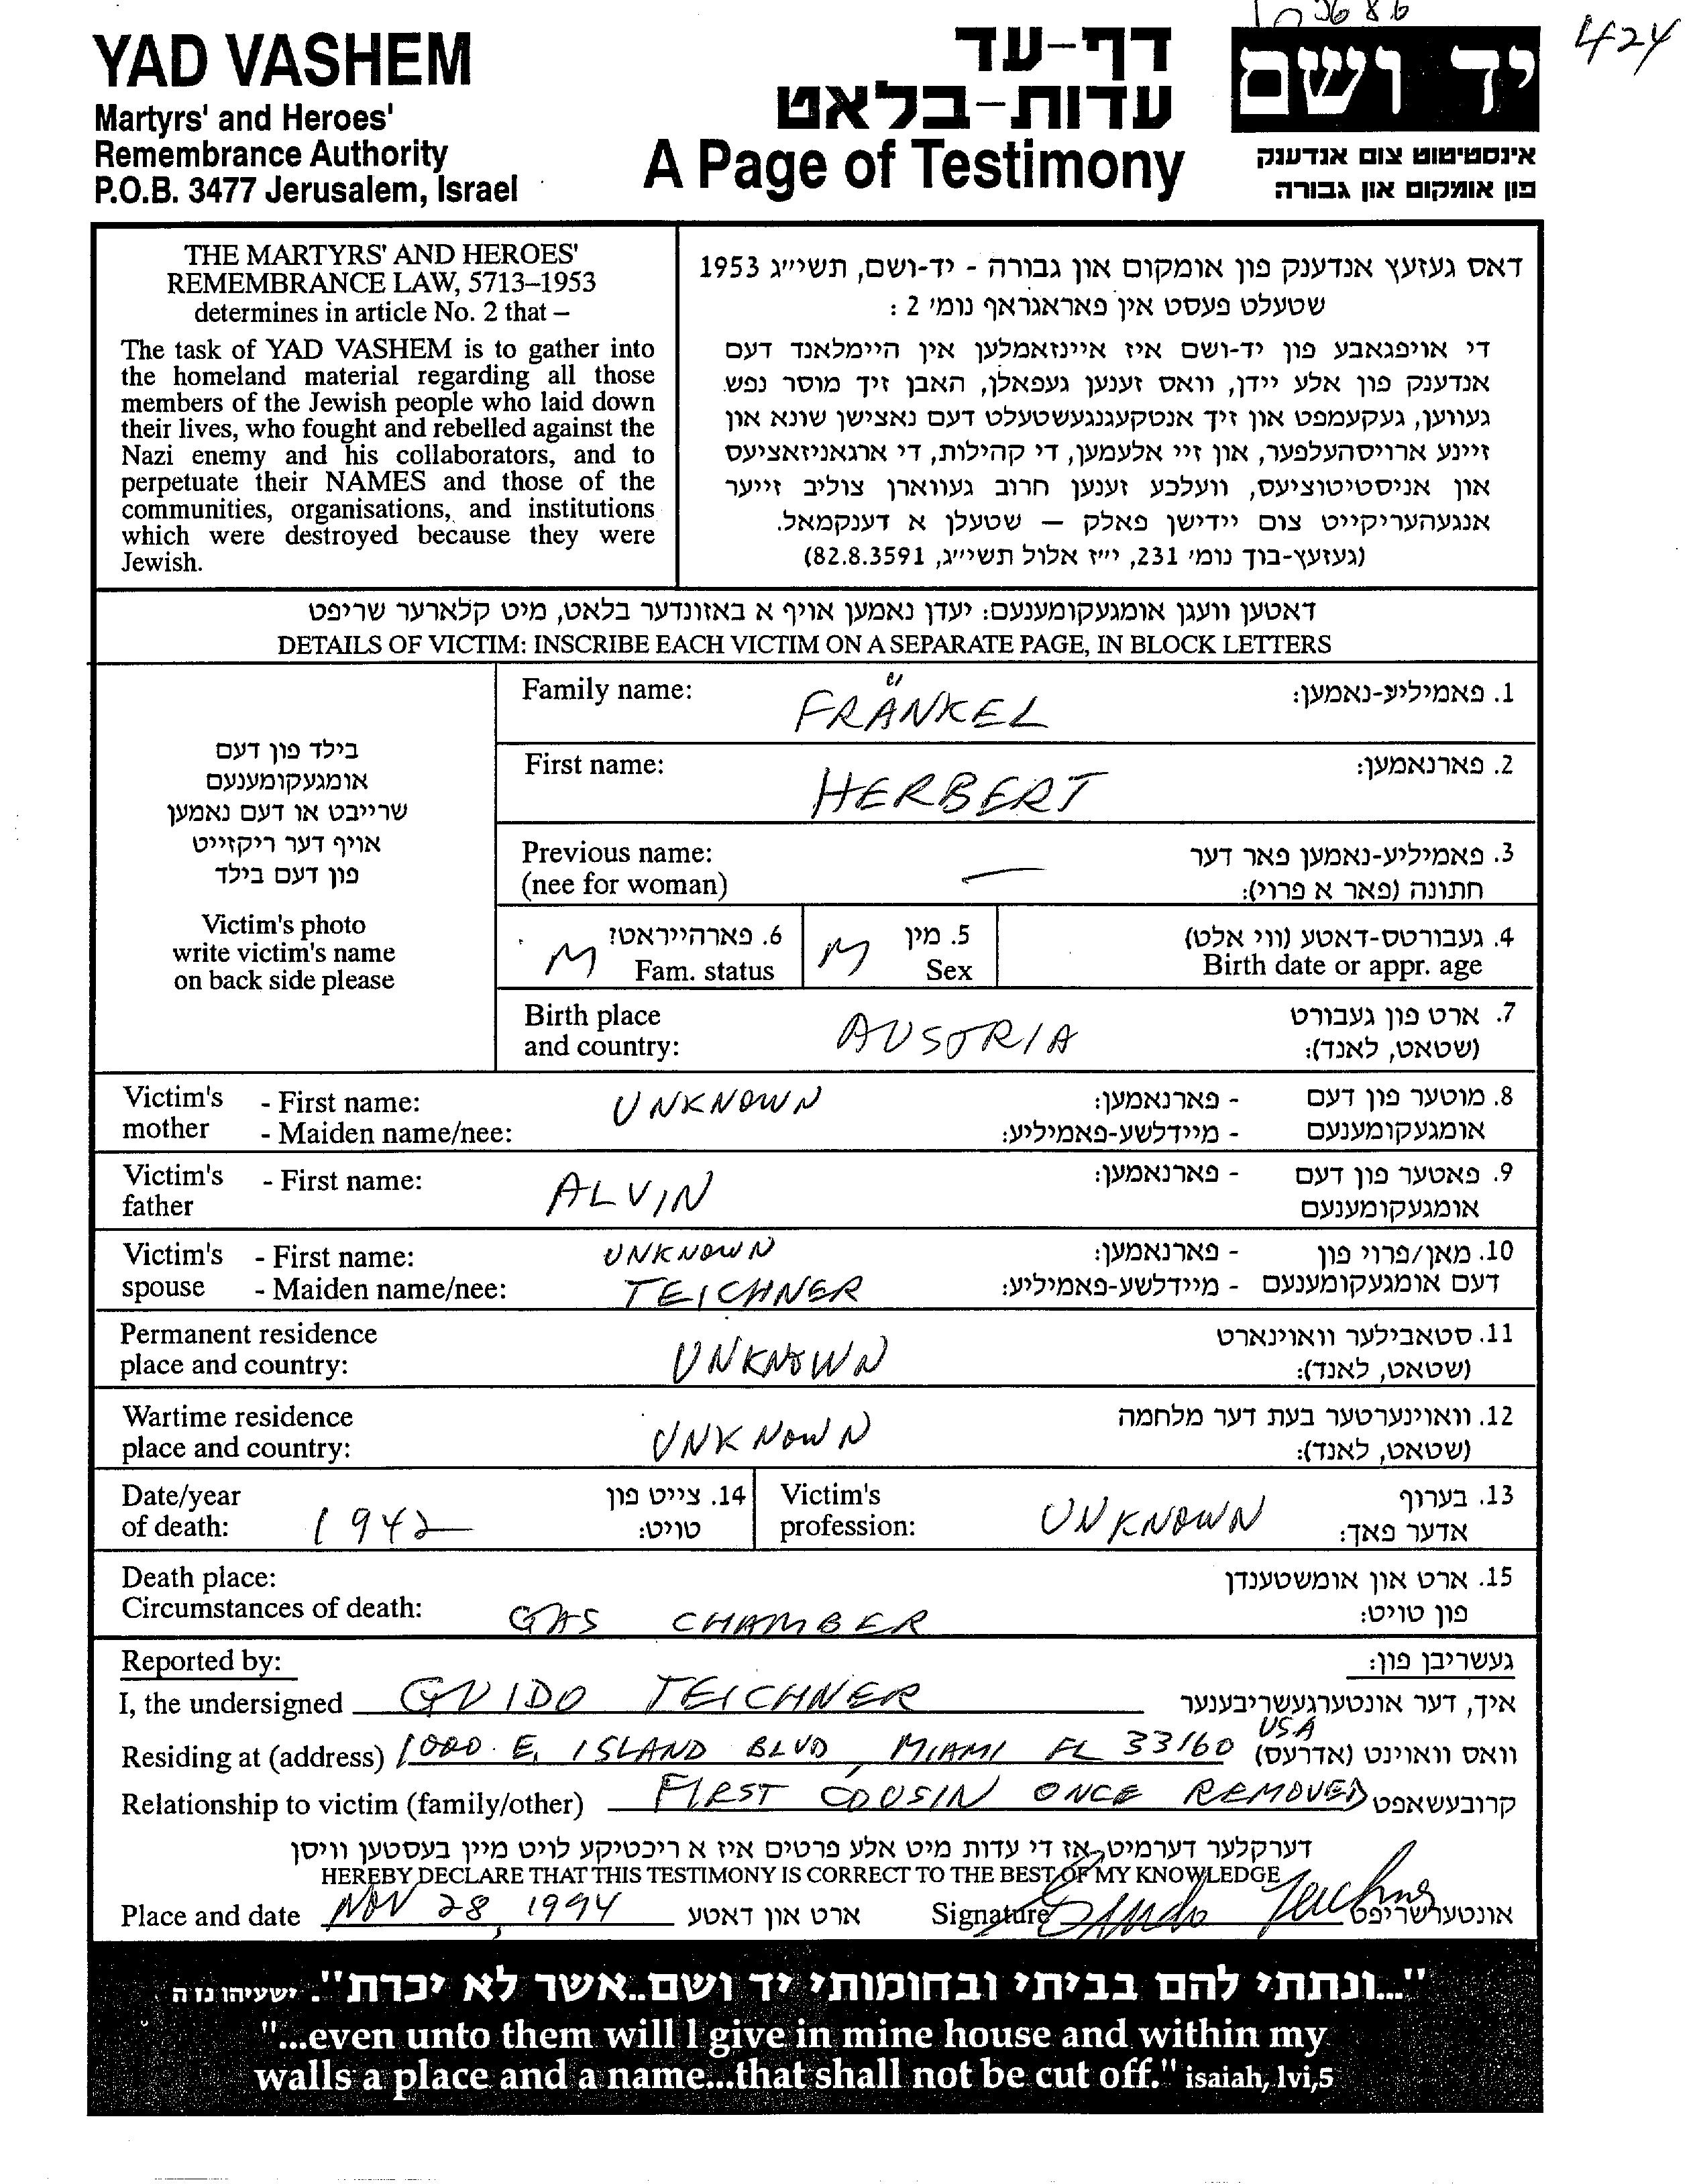 YAD VASHEM
Martyrs' and Heroes'
Remembrance Authority
P.O.B. 3477 Jerusalem, Israel
דף-עד
עדות-בלאט
A Page of Testimony
424
יד ושם
אינסטיטוט צום אנדענק
פון אומקום און גבורה
THE MARTYRS' AND HEROES'
REMEMBRANCE LAW, 5713–1953
determines in article No. 2 that –
The task of YAD VASHEM is to gather into
the homeland material regarding all those
members of the Jewish people who laid down
their lives, who fought and rebelled against the
Nazi enemy and his collaborators, and to
perpetuate their NAMES and those of the
communities, organisations, and institutions
which were destroyed because they were
Jewish.
דאס געזעץ אנדענק פון אומקום און גבורה - יד-ושם, תשי״ג 1953
שטעלט פעסט אין פאראגראף נומ׳ 2 :
די אויפגאבע פון יד-ושם איז איינזאמלען אין היימלאנד דעם
אנדענק פון אלע יידן, וואס זענען געפאלן, האבן זיך מוסר נפש
געווען, געקעמפט און זיך אנטקעגנגעשטעלט דעם נאצישן שונא און
זיינע ארויסהעלפער, און זיי אלעמען, די קהילות, די ארגאניזאציעס
און אניסטיטוציעס, וועלכע זענען חרוב געווארן צוליב זייער
אנגעהעריקייט צום יידישן פאלק — שטעלן א דענקמאל.
(געזעץ-בוך נומ׳ 231, י״ז אלול תשי״ג, 82.8.3591)
דאטען וועגן אומגעקומענעם: יעדן נאמען אויף א באזונדער בלאט, מיט קלארער שריפט
DETAILS OF VICTIM: INSCRIBE EACH VICTIM ON A SEPARATE PAGE, IN BLOCK LETTERS
בילד פון דעם
אומגעקומענעם
שרייבט או דעם נאמען
אויף דער ריקזייט
פון דעם בילד
Victim's photo
write victim's name
on back side please
Family name: FRÄNKEL 1. פאמיליע-נאמען:
First name: HERBERT 2. פארנאמען:
Previous name: 3. פאמיליע-נאמען פאר דער
(nee for woman) — חתונה (פאר א פרוי):
M 6. פארהייראט? M 5. מין 4. געבורטס-דאטע (ווי אלט)
Fam. status Sex Birth date or appr. age
Birth place AUSTRIA 7. ארט פון געבורט
and country: (שטאט, לאנד):
Victim's - First name: UNKNOWN - פארנאמען: 8. מוטער פון דעם
mother - Maiden name/nee: - מיידלשע-פאמיליע: אומגעקומענעם
Victim's - First name: ALVIN - פארנאמען: 9. פאטער פון דעם
father אומגעקומענעם
Victim's - First name: UNKNOWN - פארנאמען: 10. מאן/פרוי פון
spouse - Maiden name/nee: TEICHNER - מיידלשע-פאמיליע: דעם אומגעקומענעם
Permanent residence 11. סטאבילער וואוינארט
place and country: UNKNOWN (שטאט, לאנד):
Wartime residence 12. וואוינערטער בעת דער מלחמה
place and country: UNKNOWN (שטאט, לאנד):
Date/year 14. צייט פון Victim's 13. בערוף
of death: 1942 טויט: profession: UNKNOWN אדער פאך:
Death place: 15. ארט און אומשטענדן
Circumstances of death: GAS CHAMBER פון טויט:
Reported by: געשריבן פון:
I, the undersigned GUIDO TEICHNER איך, דער אונטערגעשריבענער
Residing at (address) 1000 E. ISLAND BLVD, MIAMI FL 33160 USA וואס וואוינט (אדרעס)
Relationship to victim (family/other) FIRST COUSIN ONCE REMOVED קרובעשאפט
דערקלער דערמיט, אז די עדות מיט אלע פרטים איז א ריכטיקע לויט מיין בעסטען וויסן
HEREBY DECLARE THAT THIS TESTIMONY IS CORRECT TO THE BEST OF MY KNOWLEDGE
Place and date NOV 28, 1994 ארט און דאטע Signature Guido Teichner אונטערשריפט
"...ונתתי להם בביתי ובחומותי יד ושם..אשר לא יכרת". ישעיהו נו ה
"...even unto them will I give in mine house and within my
walls a place and a name...that shall not be cut off." isaiah, lvi,5